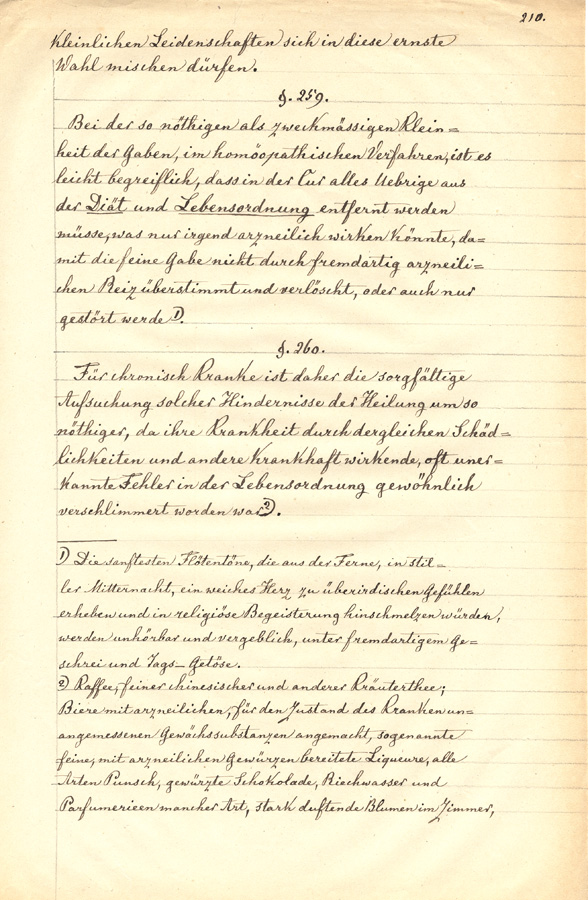 210.
kleinlichen Leidenschaften sich in diese ernste
Wahl mischen dürfen.
§. 259.
Bei der so nöthigen als zweckmässigen Klein=
heit der Gaben, im homöopathischen Verfahren, ist es
leicht begreiflich, dass in der Cur alles Uebrige aus
der Diät und Lebensordnung entfernt werden
müsse, was nur irgend arzneilich wirken könnte, da=
mit die feine Gabe nicht durch fremdartig arzneili=
chen Reiz überstimmt und verlöscht, oder auch nur
gestört werde 1).
§. 260.
Für chronisch Kranke ist daher die sorgfältige
Aufsuchung solcher Hindernisse der Heilung um so
nöthiger, da ihre Krankheit durch dergleichen Schäd=
lichkeiten und andere krankhaft wirkende, oft uner=
kannte Fehler in der Lebensordnung gewöhnlich
verschlimmert worden war 2).
1) Die sanftesten Flötentöne, die aus der Ferne, in stil=
ler Mitternacht, ein weiches Herz zu überirdischen Gefühlen
erheben und in religiöse Begeisterung hinschmelzen würden,
werden unhörbar und vergeblich, unter fremdartigem Ge=
schrei und Tags-Getöse.
2) Kaffee, feiner chinesischer und anderer Kräuterthee;
Biere mit arzneilichen, für den Zustand des Kranken un=
angemessenen Gewächssubstanzen angemacht, sogenannte
feine, mit arzneilichen Gewürzen bereitete Liqueure, alle
Arten Punsch, gewürzte Schokolade, Riechwasser und
Parfümerieen mancher Art, stark duftende Blumen im Zimmer,